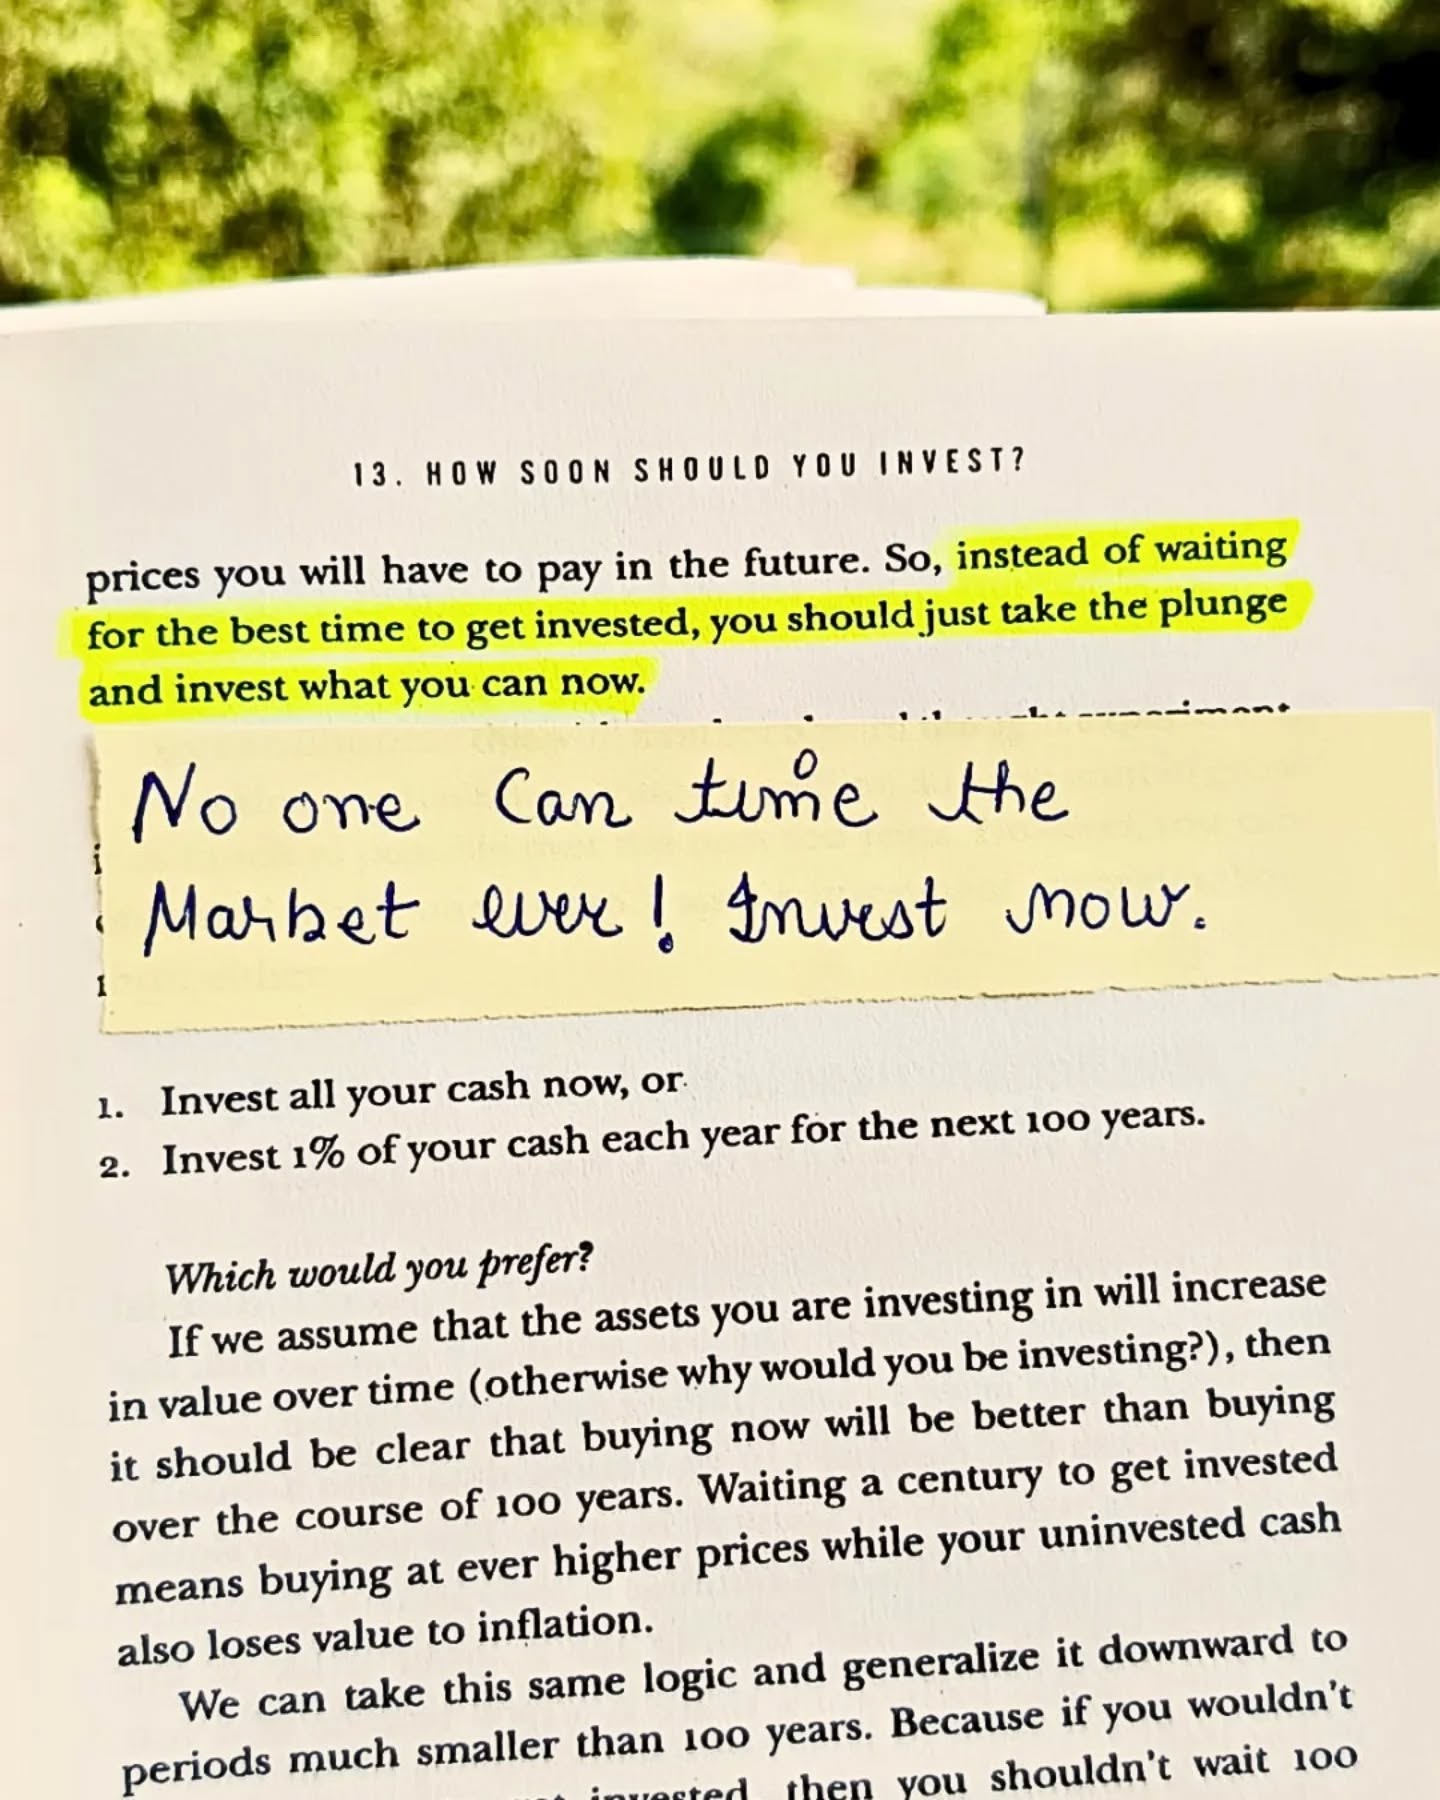 13. HOW SOON SHOULD YOU INVEST?
prices you will have to pay in the future. So, instead of waiting
for the best time to get invested, you should just take the plunge
and invest what you can now.
experiment
No one Can time the
Market ever! Invest now.
1. Invest all your cash now, or
2. Invest 1% of your cash each year for the next 100 years.
Which would you prefer?
If we assume that the assets you are investing in will increase
in value over time (otherwise why would you be investing?), then
it should be clear that buying now will be better than buying
over the course of 100 years. Waiting a century to get invested
means buying at ever higher prices while your uninvested cash
also loses value to inflation.
We can take this same logic and generalize it downward to
periods much smaller than 100 years. Because if you wouldn't
invested, then you shouldn't wait 100